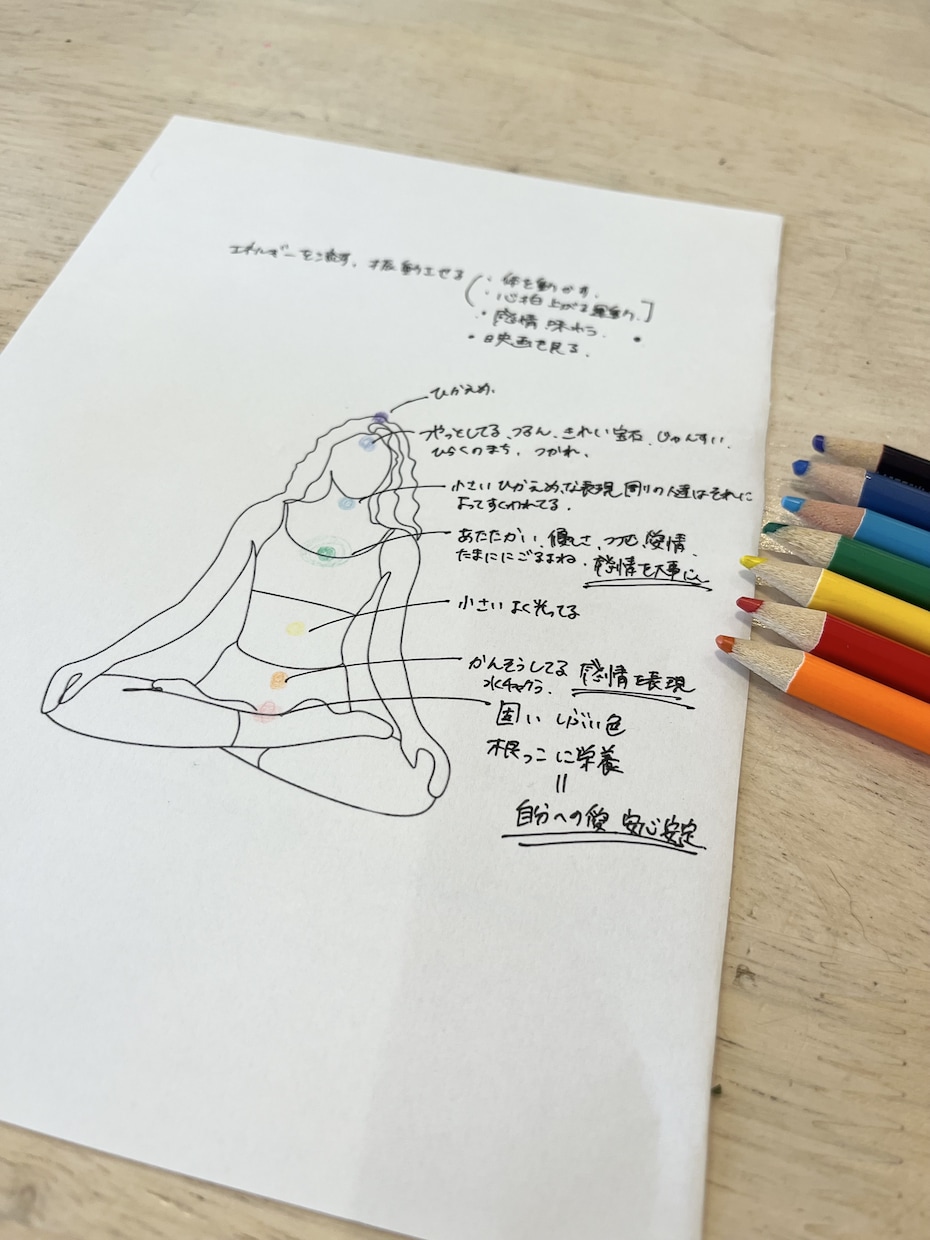 エネルギーを流す、振動させる
・体を動かす、
・心拍上がる運動
・感情 味わう
・映画を見る、
ひかえめ、
やっとしてる、つるん、きれい宝石、じゅんすい、
ひらくのまち、つかれ、
小さいひかえめな表現 周りの人達はそれに
よってすくわれてる、
あたたかい、優しさ、愛情、
たまににごるよね、感情を大事に
小さい よくそってる
かんそうしてる 感情を表現
水チャクラ、
固い しぶい色
根っこに栄養
=
自分への愛 安心 安定